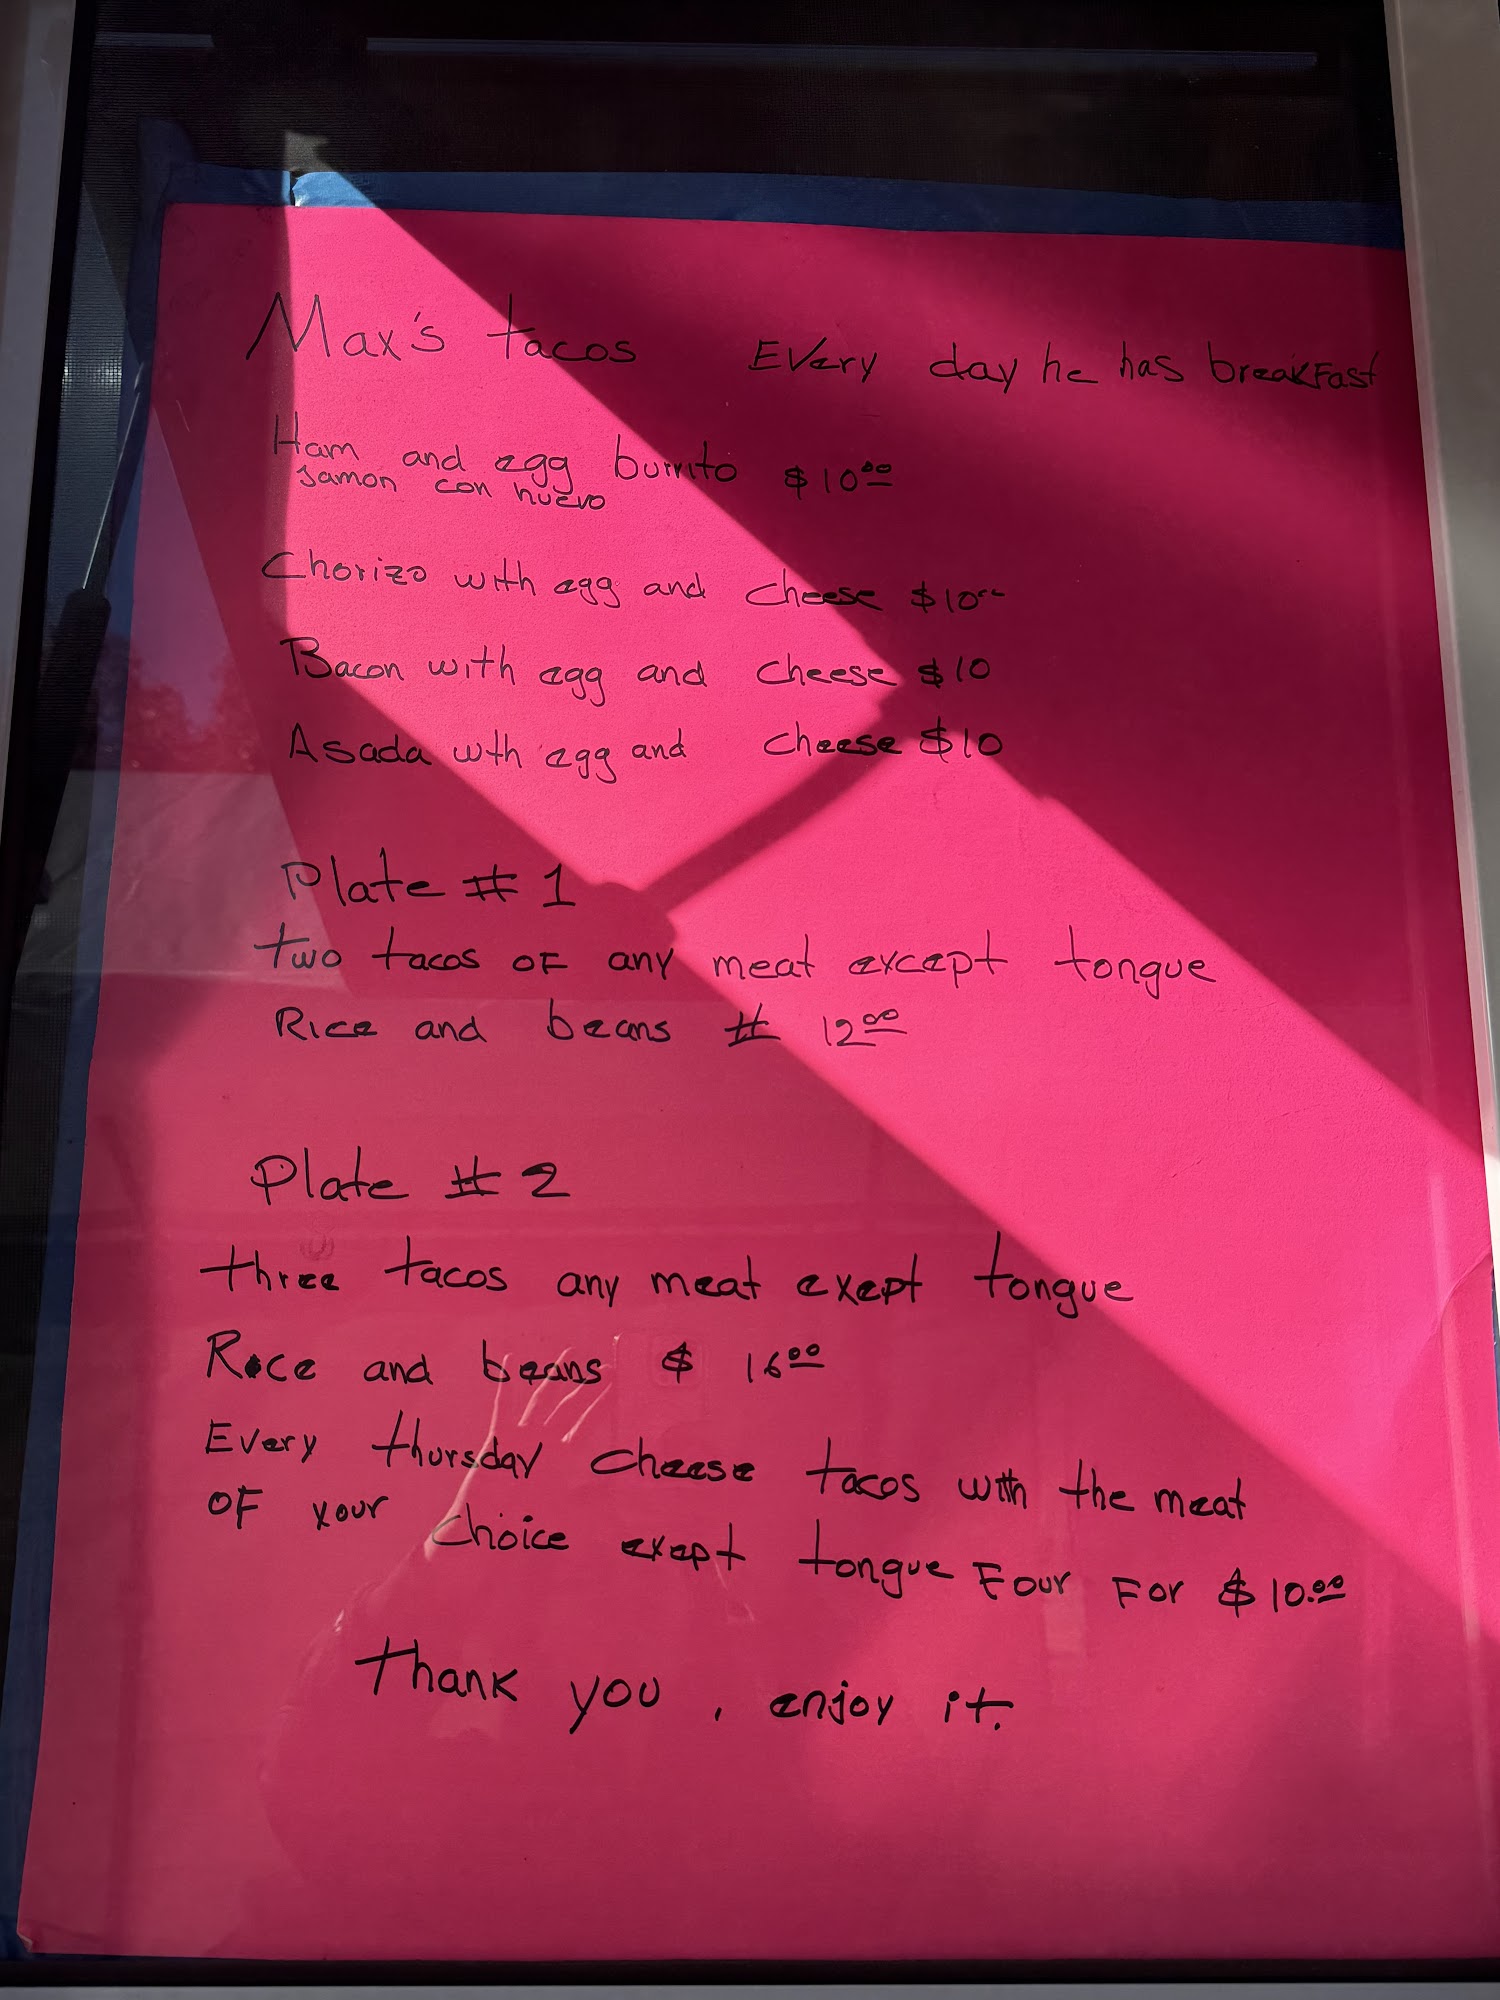 Max's tacos Every day he has breakFast
Ham and egg burrito $10.00
Jamon con huevo
Chorizo with egg and cheese $10.00
Bacon with egg and cheese $10
Asada wth egg and cheese $10
Plate # 1
two tacos OF any meat except tongue
Rice and beans # 12.00
Plate # 2
three tacos any meat exept tongue
Rice and beans $ 16.00
Every thursday cheese tacos with the meat
OF your choice exept tongue Four For $10.00
thank you, enjoy it.